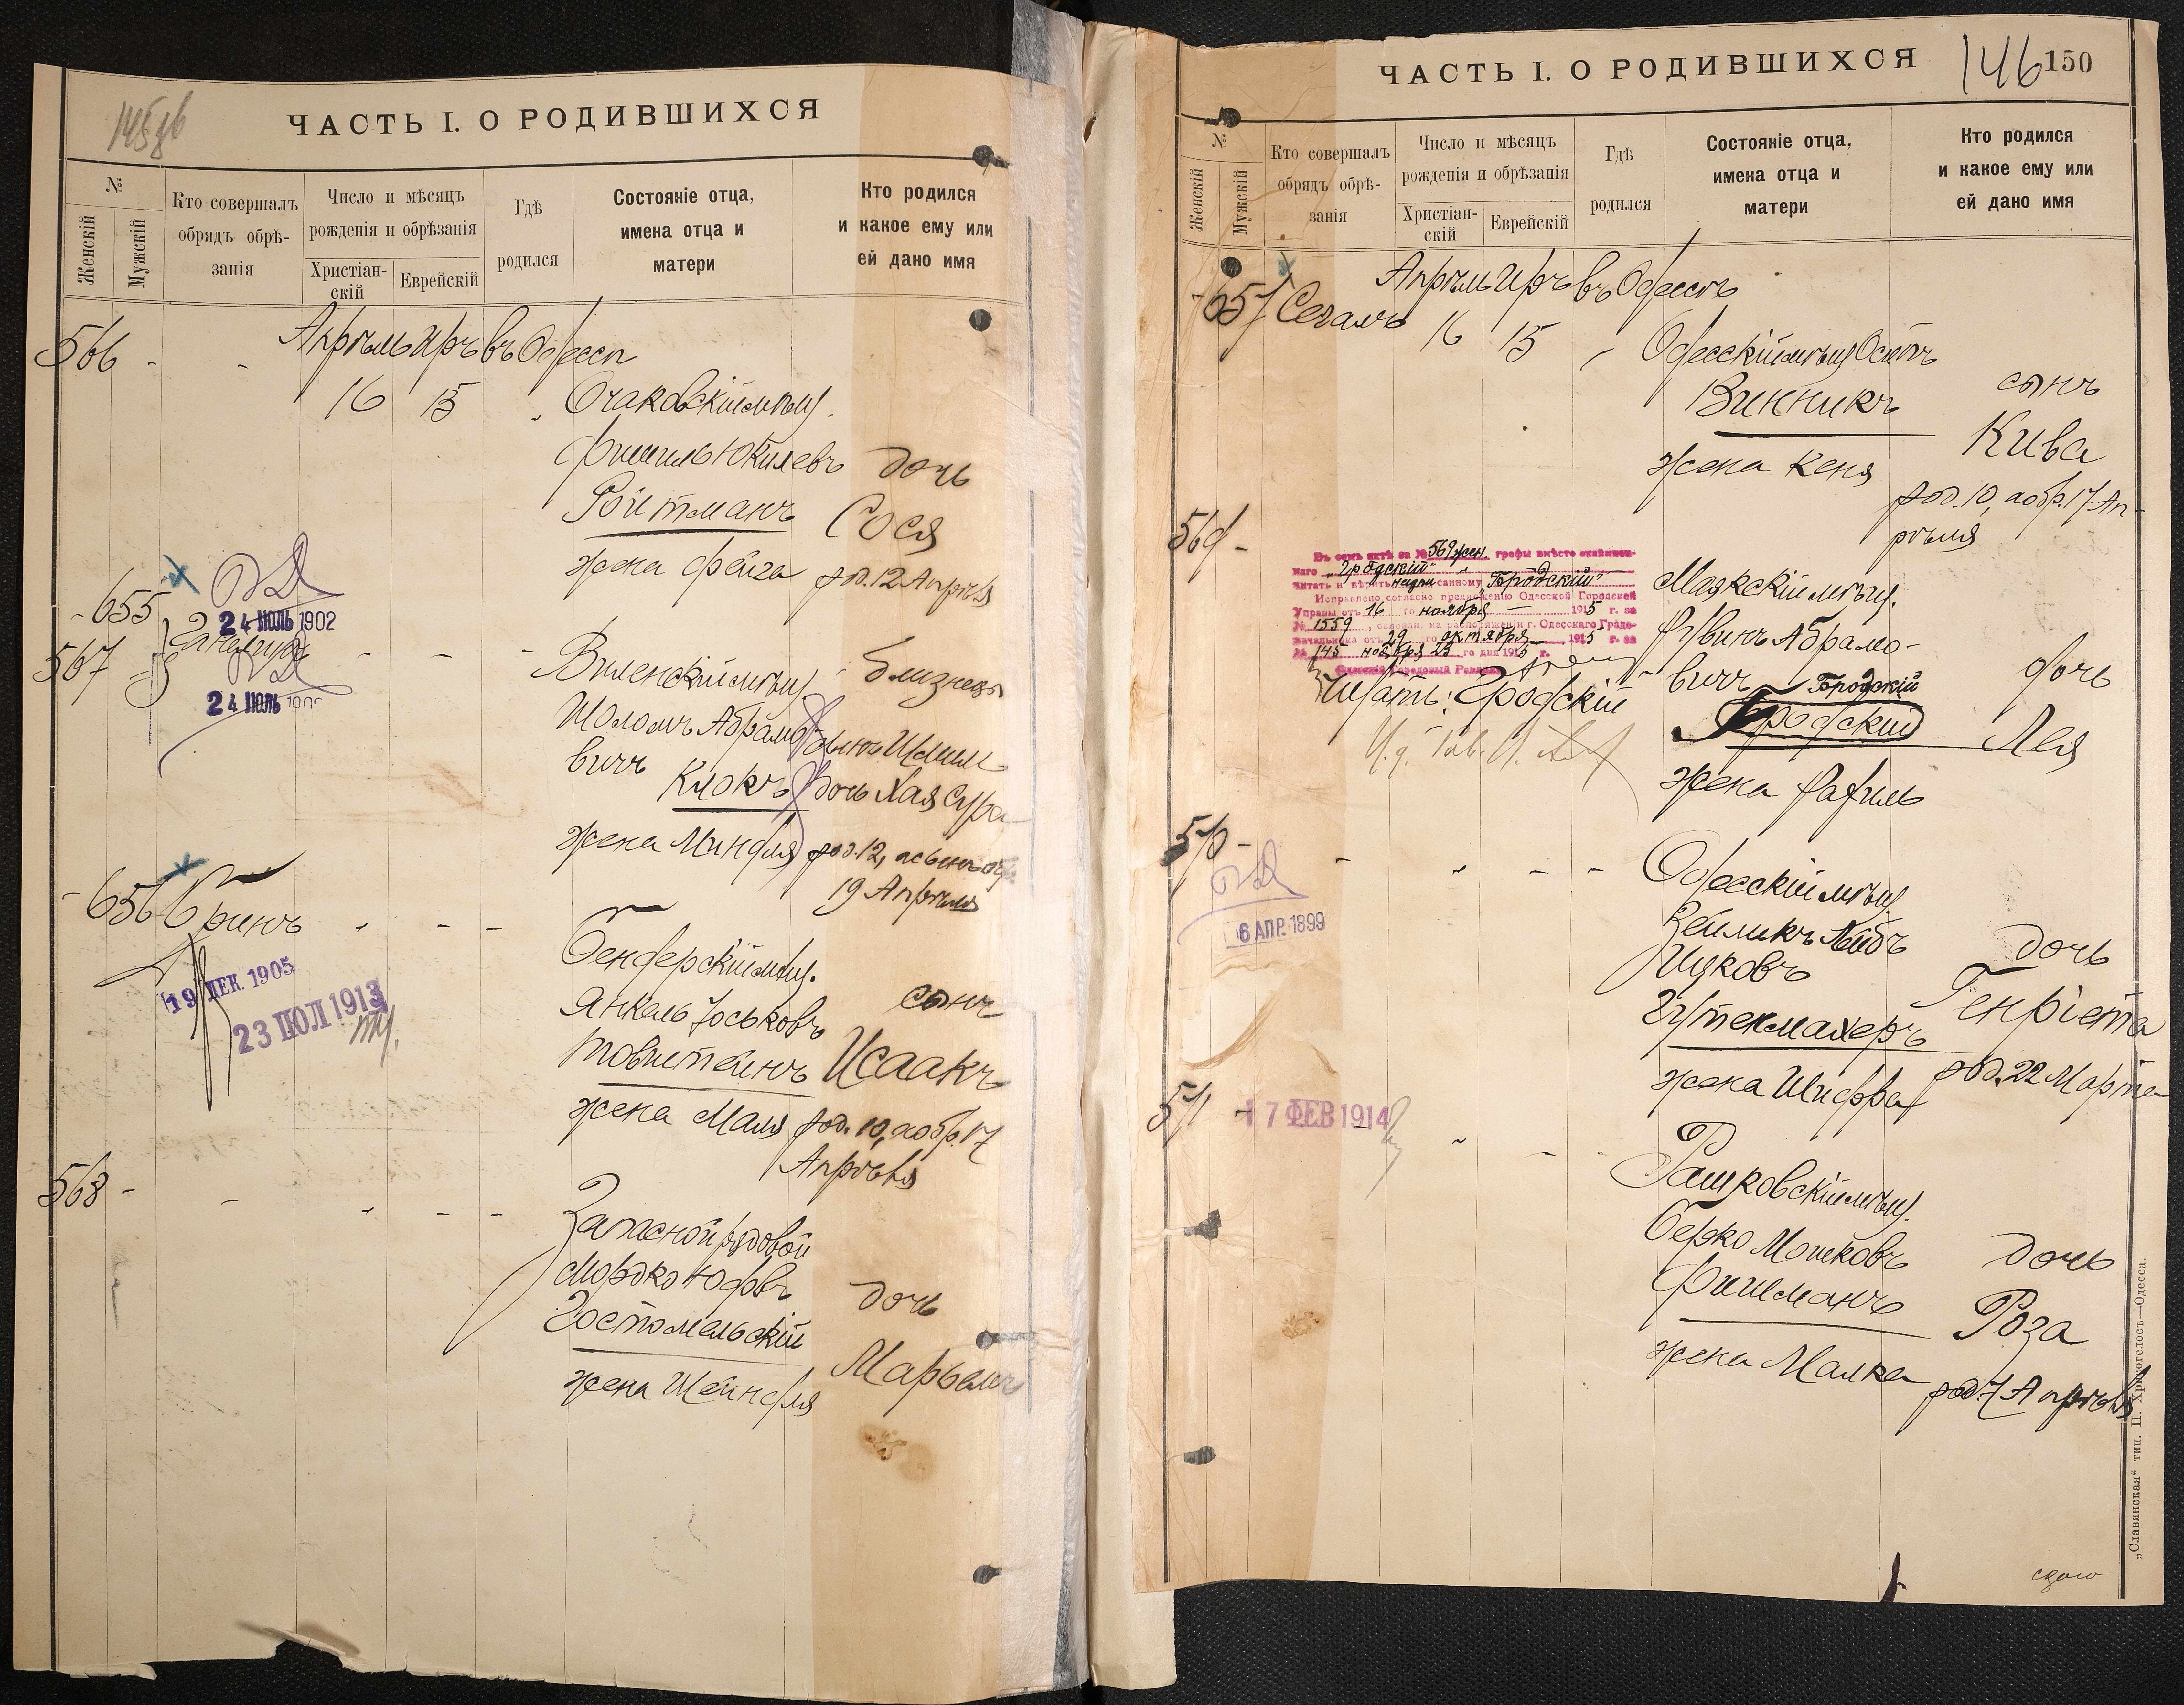 ЧАСТЬ I. О РОДИВШИХСЯ
№
Женскій
Мужскій
Кто совершалъ
обрядъ обрѣ-
занія
Число и мѣсяцъ
рожденія и обрѣзанія
Христіан-
скій
Еврейскій
Гдѣ
родился
Состояніе отца,
имена отца и
матери
Кто родился
и какое ему или
ей дано имя
Апрѣль Иръ въ Одессѣ
566 - -
16 15
Очаковскій мѣщ.
Фишель Юкилевъ
Ройтманъ
жена Фейга
дочь
Сося
род. 12 Апрѣля
655
567
24 ІЮЛЬ 1902
24 ІЮЛЬ
Виленскій мѣщ.
Шоломъ Абрамо-
вичъ
Клокъ
жена Миндля
близнецы
дочь Хая Сура
19 Апрѣля
- 656 Гринъ
19 ДЕК. 1905
23 ІЮЛ 1913
Бендерскій мѣщ.
Янкель Іоськовъ
Товштейнъ
жена Маля
сынъ
Исаакъ
род. 10, а обр. 17
Апрѣля
568 - -
Запасной рядовой
Мордко
Гостомельскій
жена Шейндля
дочь
Марьемъ
ЧАСТЬ I. О РОДИВШИХСЯ
146 150
№
Женскій
Мужскій
Кто совершалъ
обрядъ обрѣ-
занія
Число и мѣсяцъ
рожденія и обрѣзанія
Христіан-
скій
Еврейскій
Гдѣ
родился
Состояніе отца,
имена отца и
матери
Кто родился
и какое ему или
ей дано имя
Апрѣль Иръ въ Одессѣ
- 657 Сегалъ
16 15
Одесскій мѣщ. Осипъ
Винникъ
жена Кеня
сынъ
Кива
род. 10, а обр. 17 Ап-
рѣля
569 -
Въ семъ актѣ за № 569 жен. графы вмѣсто
наго „Гродскій"
читать и надписанному „Бродскій"
Исправлено согласно предложенію Одесской Городской
Управы отъ 16 го ноября 1915 г. за
№ 1559, основан. на распоряженіи г. Одесскаго Градо-
начальника отъ 29 го октября 1915 г. за
№ 145 ноября 23 го дня 1915 г.
Читать: Гродскій
Маякскій мѣщ.
Рувинъ Абрамо-
вичъ Бродскій
жена Рахиль
дочь
Лея
570 -
6 АПР. 1899
Одесскій мѣщ.
Зейликъ Лейбъ
Ицковъ
Гутенмахеръ
жена Шифра
дочь
Генріета
род. 22 Марта
571 -
17 ФЕВ 1914
Рашковскій мѣщ.
Берко Мошковъ
Фишманъ
жена Малка
дочь
Роза
род. 7 Апрѣля
„Славянская" тип. Н. Хрисогелосъ—Одесса.